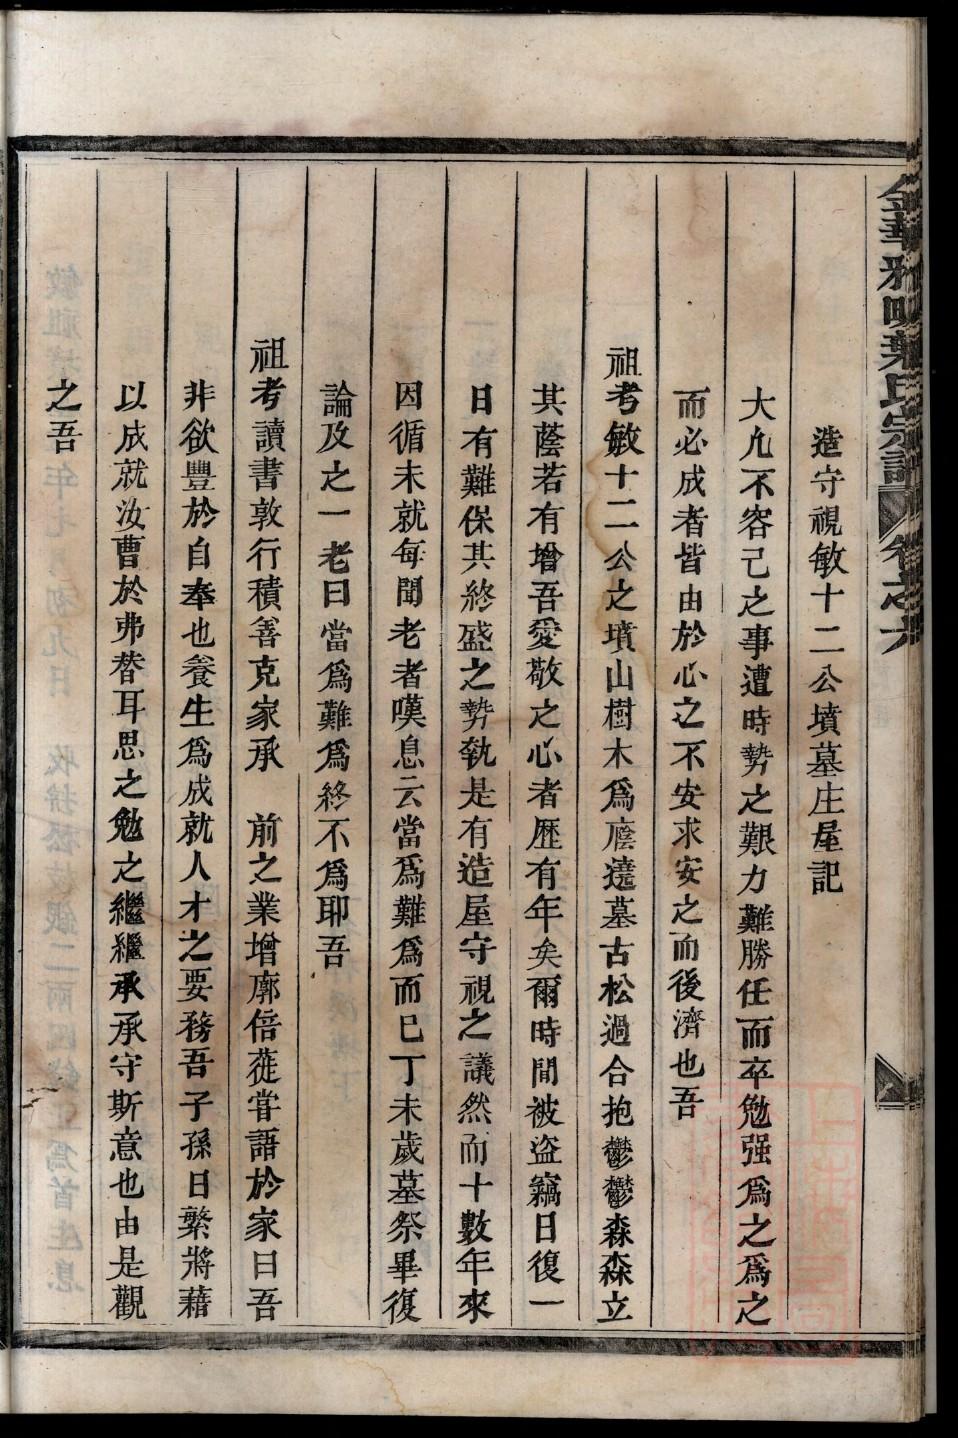 造守視敏十二公墳墓庄屋記
大九不容己之事遭時勢之艱力難勝任而卒勉强爲之爲之
而必成者皆由於心之不安求安之而後濟也吾
祖考敏十二公之墳山樹木爲廕遶墓古松過合抱鬱鬱森森立
其蔭若有增吾愛敬之心者歷有年矣爾時間被盜竊日復一
日有難保其終盛之勢執是有造屋守視之議然而十數年來
因循未就每聞老者嘆息云當爲難爲而已丁未歲墓祭畢復
論及之一老曰當爲難爲終不爲耶吾
祖考讀書敦行積善克家承 前之業增廓倍蓰甞語於家曰吾
非欲豐於自奉也養生爲成就人才之要務吾子孫日繁將藉
以成就汝曹於弗替耳思之勉之繼繼承承守斯意也由是觀
之吾
金華 葉氏宗譜 卷之六